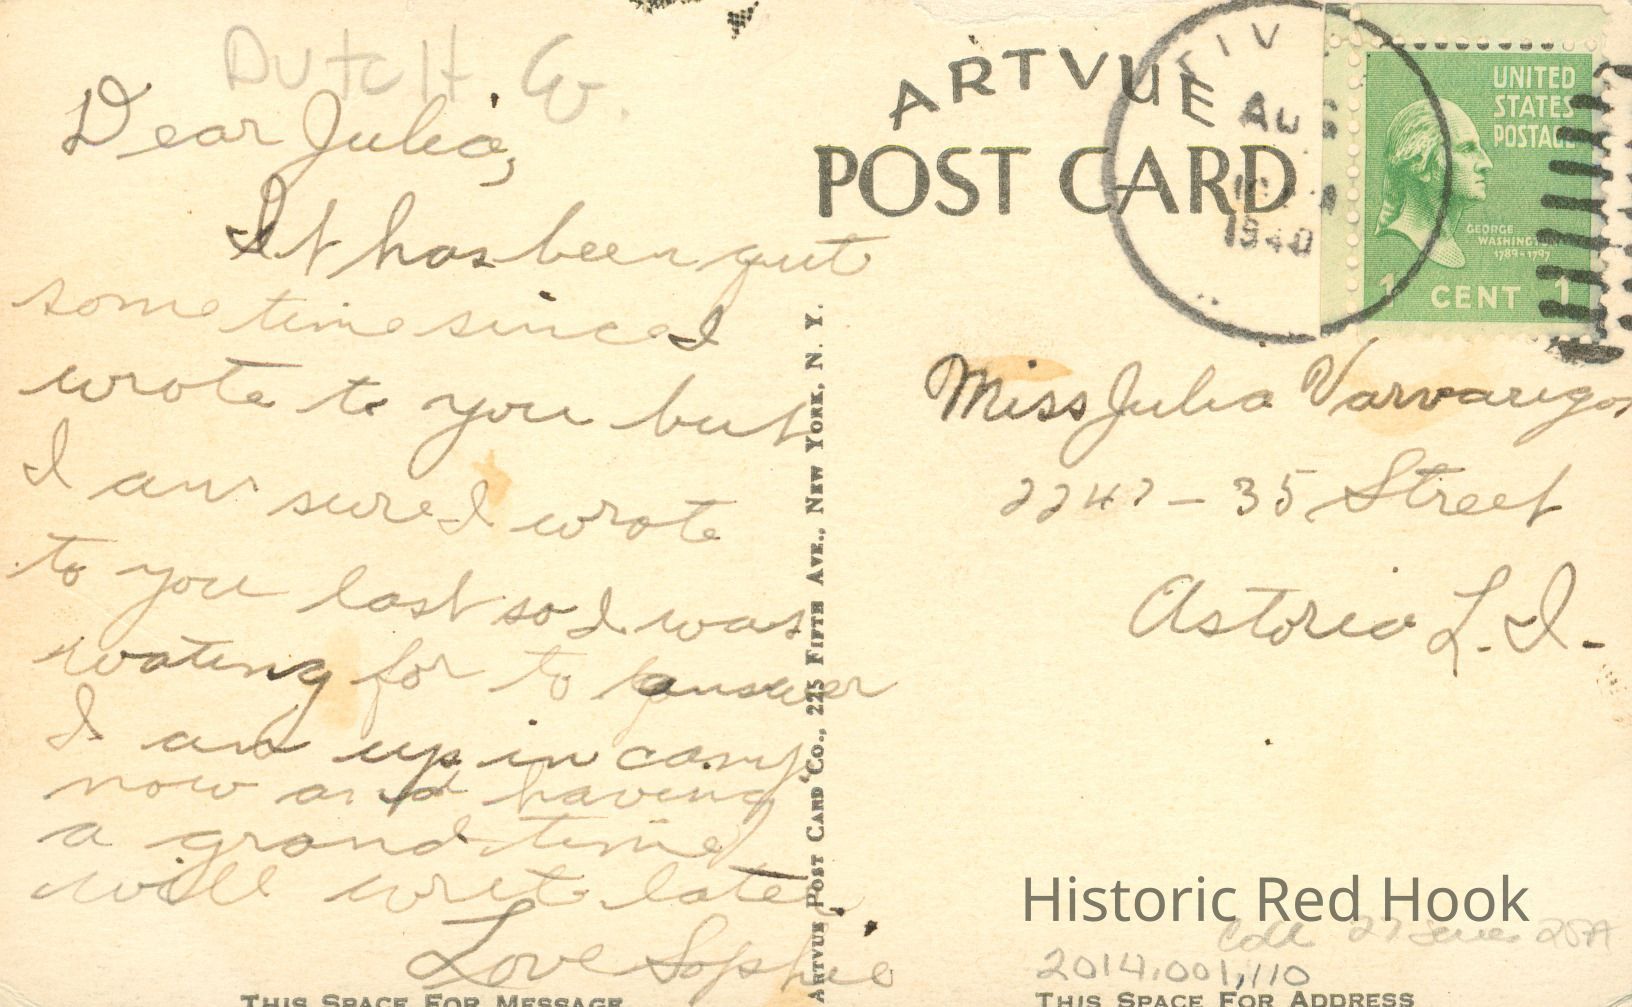 DUTCH Co.
Dear Julia,
It has been quit
some time since I
wrote to you but
I am sure I wrote
to you last so I was
wating for to answer
I am up in camp
now and having
a grand time
will writ later
Love Sophie
THIS SPACE FOR MESSAGE
ARTVUE POST CARD CO., 225 FIFTH AVE., NEW YORK, N. Y.
ARTVUE
POST CARD
AUG
1940
UNITED
STATES
POSTAGE
GEORGE
WASHINGTON
1789-1797
1 CENT 1
Miss Julia Varvarigos
2247 - 35 Street
Astoria L.I.
Historic Red Hook
Coll 27 Series 25A
2014.001.110
THIS SPACE FOR ADDRESS